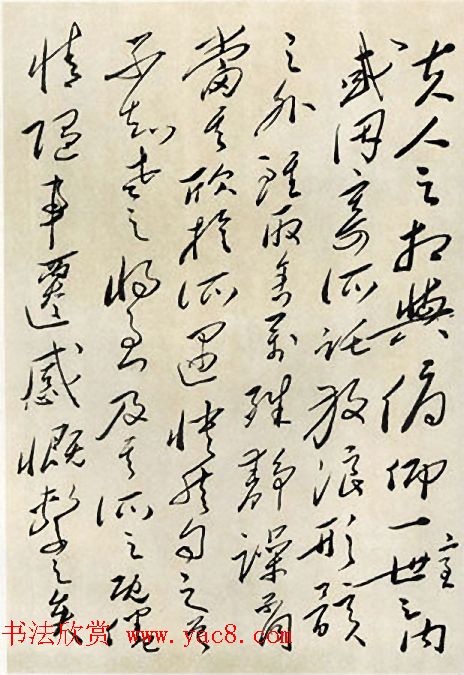 夫人之相與俯仰一世室之內
或因寄所託放浪形骸
之外雖取舍萬殊靜躁不同
當其欣於所遇快然自足
不知老之將至及其所之既倦
情隨事遷感慨繫之矣
书法欣赏 www.yac8.com